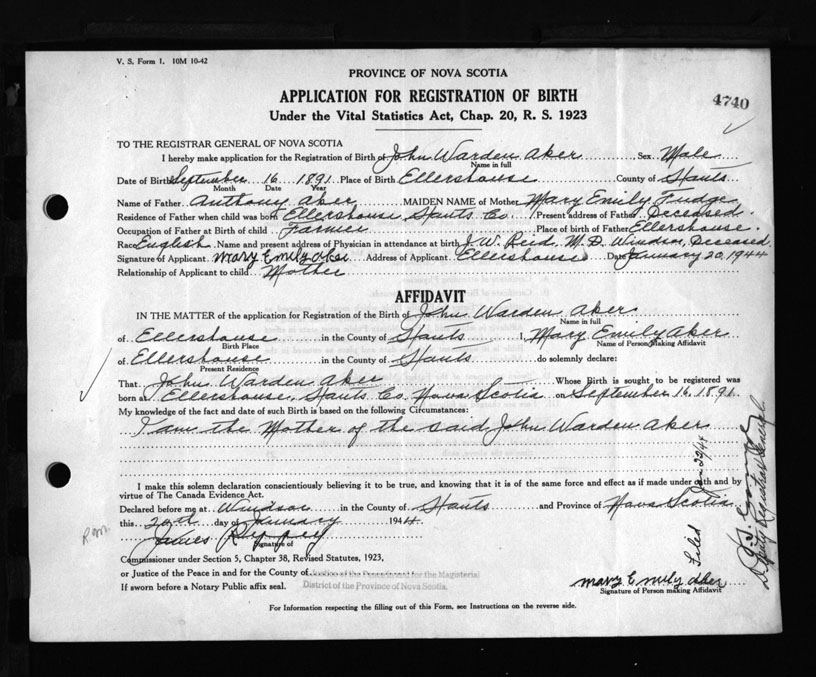 V. S. Form 1. 10M 10-42
PROVINCE OF NOVA SCOTIA
APPLICATION FOR REGISTRATION OF BIRTH
Under the Vital Statistics Act, Chap. 20, R. S. 1923
4740
TO THE REGISTRAR GENERAL OF NOVA SCOTIA
I hereby make application for the Registration of Birth of John Warden Aker, Sex Male
Name in full
Date of Birth September 16 1891 Place of Birth Ellershouse County of Hants
Month Date Year
Name of Father Anthony Aker MAIDEN NAME of Mother Mary Emily Fudge
Residence of Father when child was born Ellershouse Hants Co. Present address of Father Deceased.
Occupation of Father at Birth of child Farmer Place of birth of Father Ellershouse
Race English Name and present address of Physician in attendance at birth J. W. Reid, M. D. Windsor, Deceased.
Signature of Applicant Mary Emily Aker Address of Applicant Ellershouse Date January 20, 1944
Relationship of Applicant to child Mother
AFFIDAVIT
IN THE MATTER of the application for Registration of the Birth of John Warden Aker
Name in full
of Ellershouse in the County of Hants I, Mary Emily Aker
Birth Place Name of Person Making Affidavit
of Ellershouse in the County of Hants do solemnly declare:
Present Residence
That John Warden Aker Whose Birth is sought to be registered was
born at Ellershouse, Hants Co. Nova Scotia on September 16, 1891.
My knowledge of the fact and date of such Birth is based on the following Circumstances:
I am the Mother of the said John Warden Aker
I make this solemn declaration conscientiously believing it to be true, and knowing that it is of the same force and effect as if made under oath and by
virtue of The Canada Evidence Act.
Declared before me at Windsor in the County of Hants and Province of Nova Scotia
this 20th day of January 1944.
James
Signature of
Commissioner under Section 5, Chapter 38, Revised Statutes, 1923,
or Justice of the Peace in and for the County of Justice of the Peace in and for the Magisterial
If sworn before a Notary Public affix seal. District of the Province of Nova Scotia.
Mary Emily Aker
Signature of Person making Affidavit
For Information respecting the filling out of this Form, see Instructions on the reverse side.
Filed Jan 22/44
Deputy Registrar General